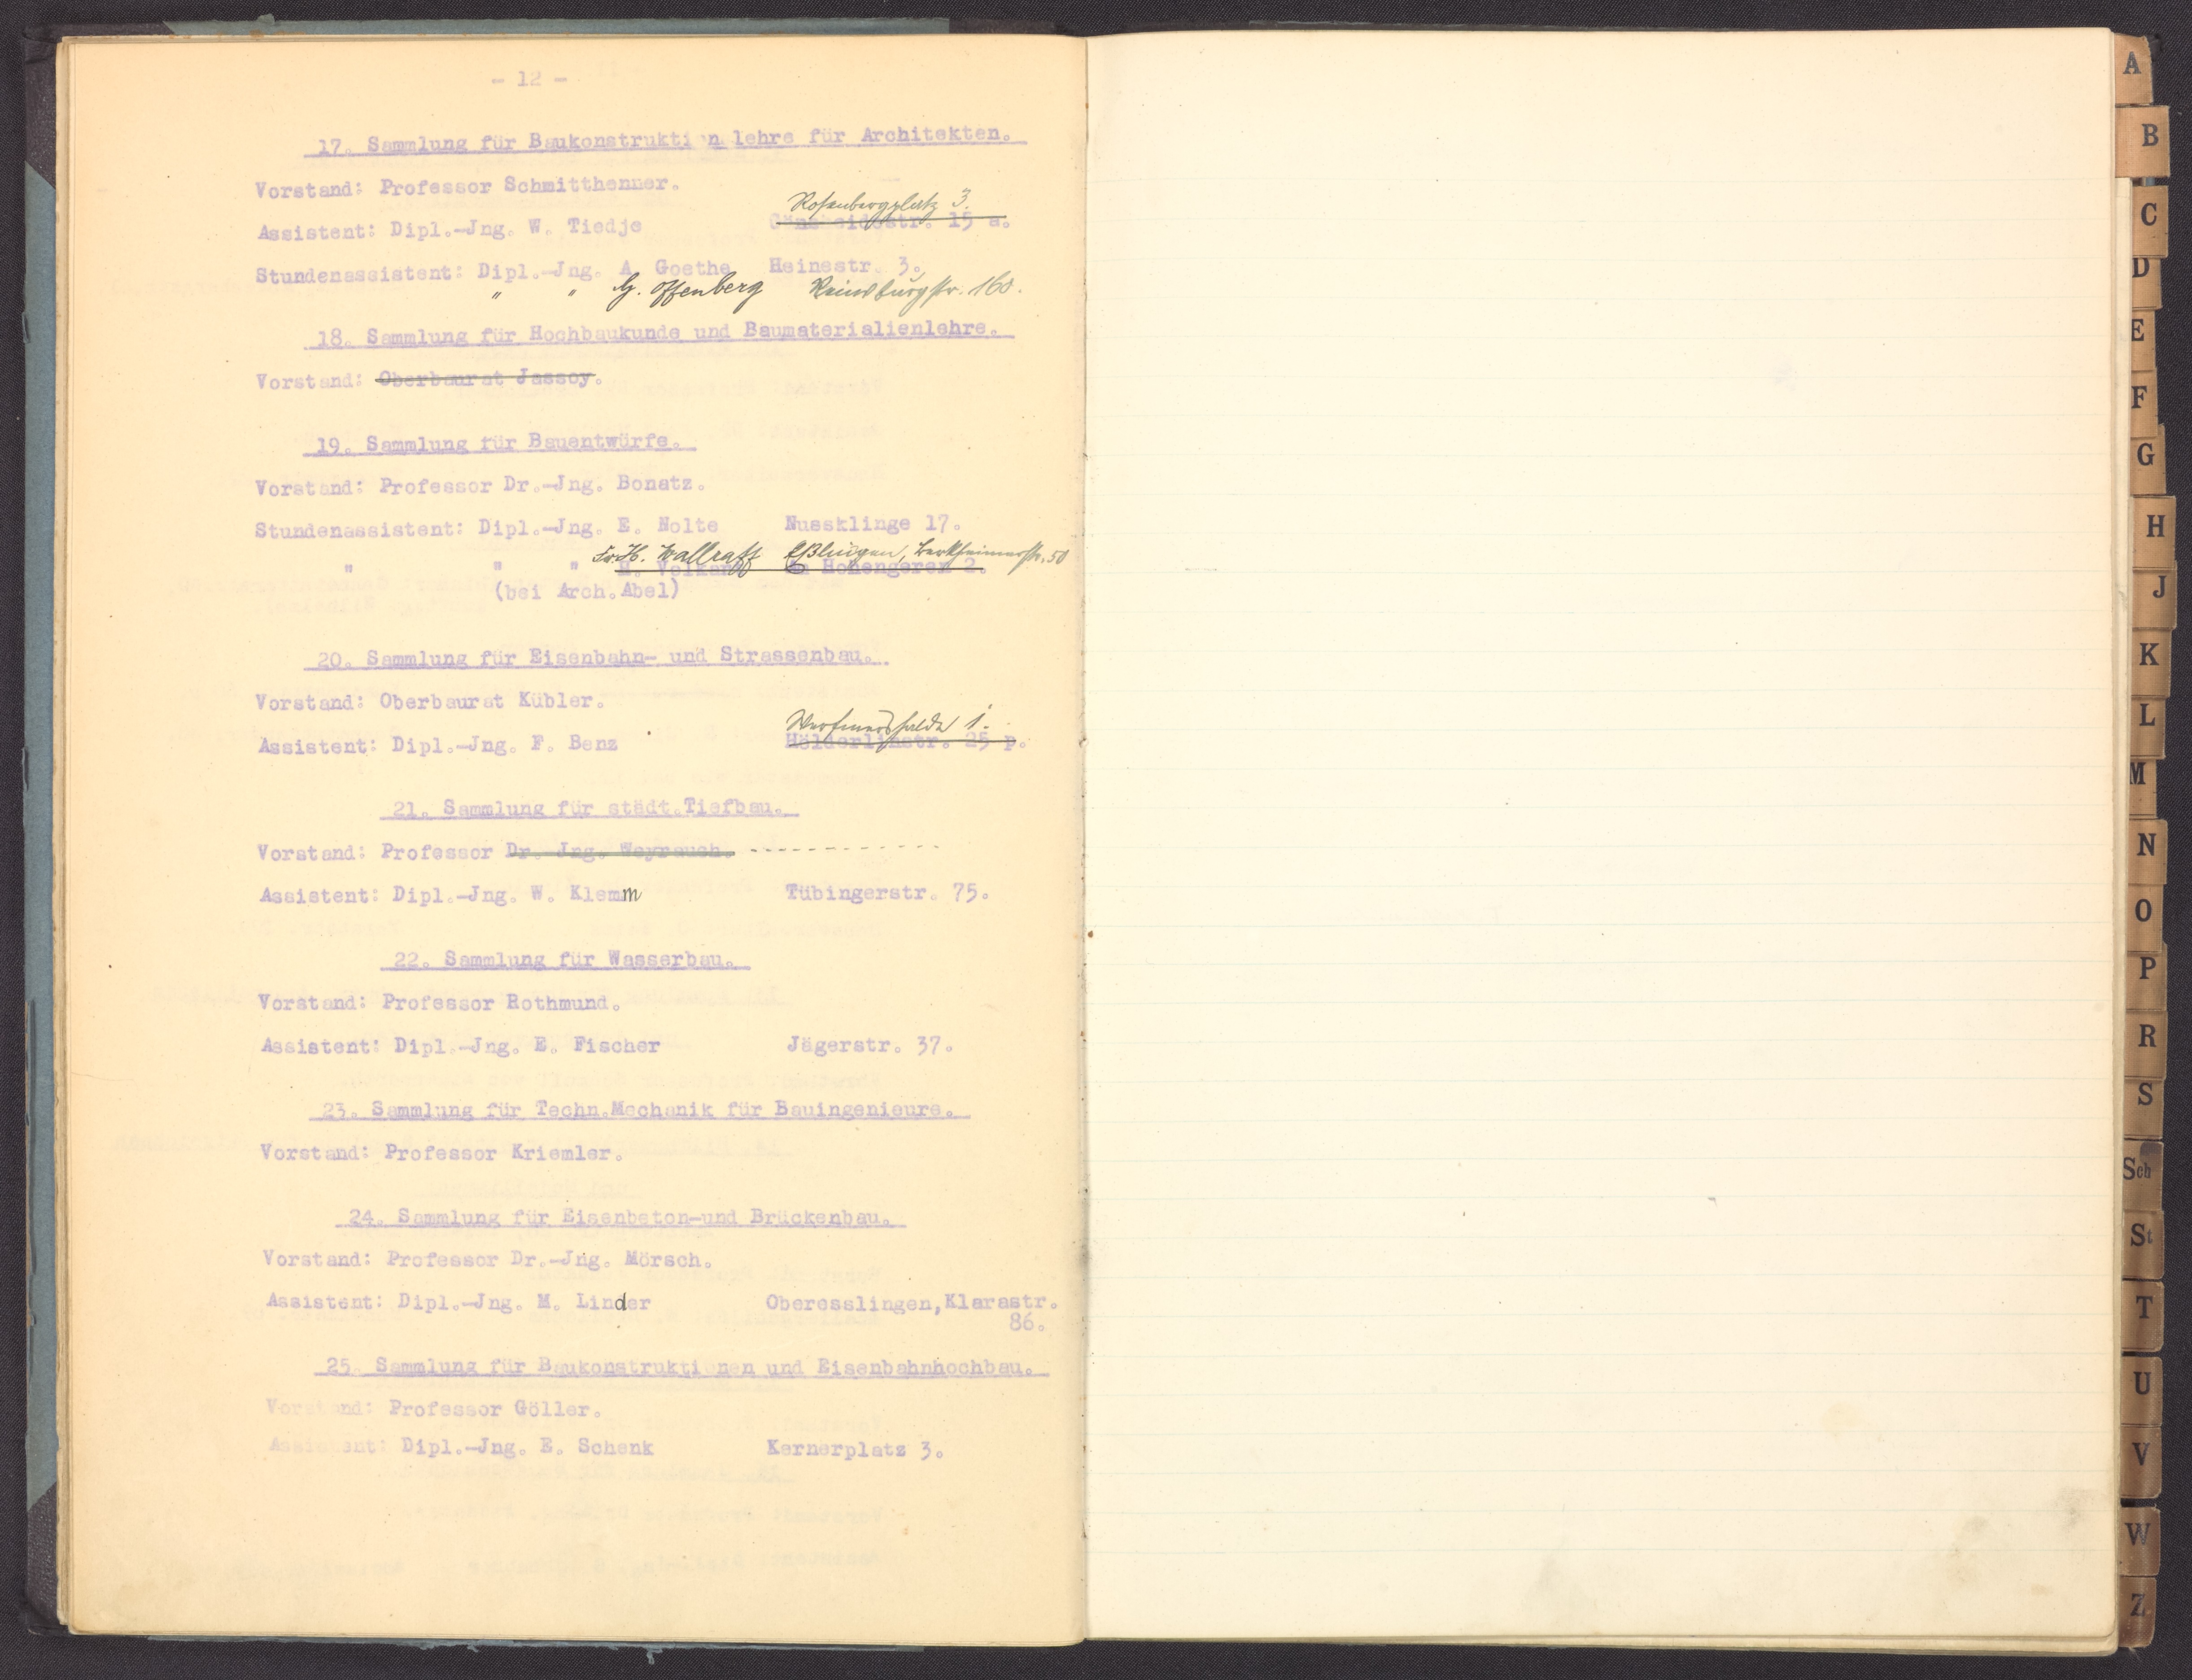 - 12 -
17. Sammlung für Baukonstrukti n lehre für Architekten.
Vorstand: Professor Schmitthenner.
Rosenbergplatz 3.
Assistent: Dipl.-Jng. W. Tiedje 15 a.
Stundenassistent: Dipl.-Jng. A. Goethe Heinestr. 3.
" " G. Offenberg Reinsburgstr. 160.
18. Sammlung für Hochbaukunde und Baumaterialienlehre.
Vorstand: Oberbaurat Jassoy.
19. Sammlung für Bauentwürfe.
Vorstand: Professor Dr.-Jng. Bonatz.
Stundenassistent: Dipl.-Jng. E. Nolte Nussklinge 17.
H. Wallraff Eßlingen, Berkheimerstr. 50
" " " H. Hohengeren 2.
(bei Arch. Abel)
20. Sammlung für Eisenbahn- und Strassenbau.
Vorstand: Oberbaurat Kübler.
1.
Assistent: Dipl.-Jng. F. Benz Hölderlinstr. 25 p.
21. Sammlung für städt.Tiefbau.
Vorstand: Professor Dr.-Jng. Weyrauch. - - - - - - - - - - - -
Assistent: Dipl.-Jng. W. Klemm Tübingerstr. 75.
22. Sammlung für Wasserbau.
Vorstand: Professor Rothmund.
Assistent: Dipl.-Jng. E. Fischer Jägerstr. 37.
23. Sammlung für Techn.Mechanik für Bauingenieure.
Vorstand: Professor Kriemler.
24. Sammlung für Eisenbeton-und Brückenbau.
Vorstand: Professor Dr.-Jng. Mörsch.
Assistent: Dipl.-Jng. M. Linder Oberesslingen,Klarastr.
86.
25. Sammlung für Baukonstrukti nen und Eisenbahnhochbau.
Vorstand: Professor Göller.
Assistent: Dipl.-Jng. E. Schenk Kernerplatz 3.
A
B
C
D
E
F
G
H
J
K
L
M
N
O
P
R
S
Sch
St
T
U
V
W
Z